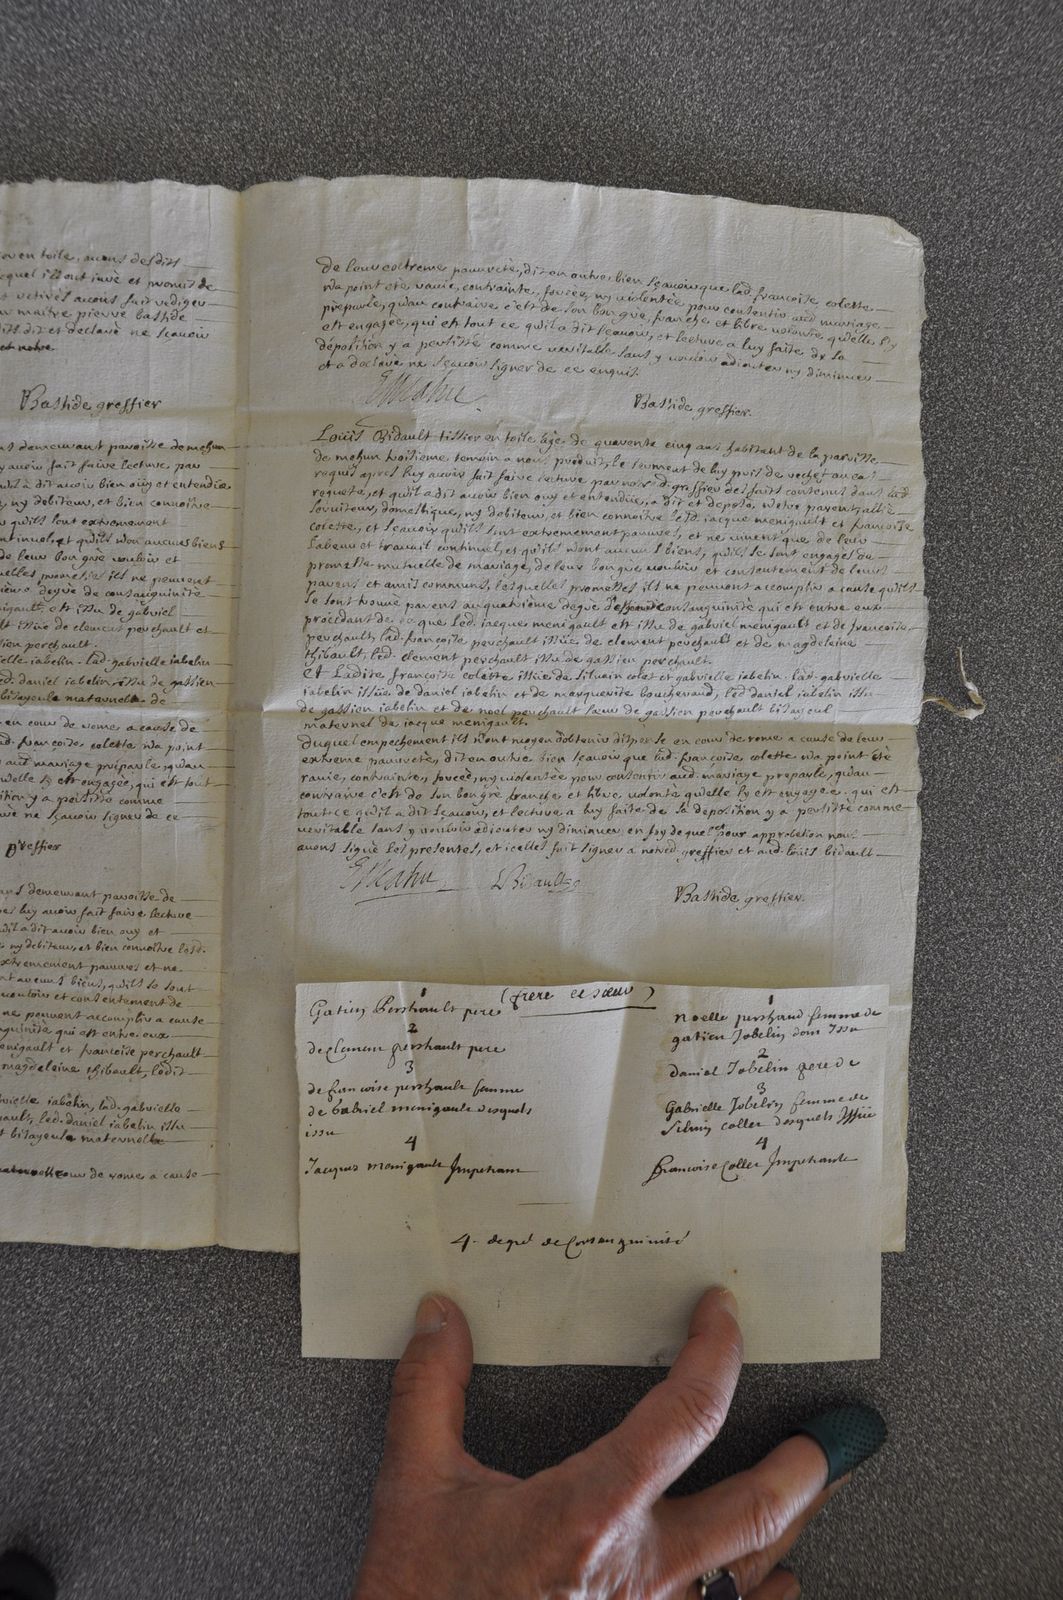 en toile, avons desdits
lequel ils ont juré et promis de
retirés avons fait rediger
maitre pierre bastide
dit et declaré ne sçavoir
et notre.
Bastide greffier
demeurant paroisse de mehun
avoir fait faire lecture par
a dit avoir bien ouÿ et entendüe
ny debiteur, et bien connoitre
qu'ils sont extremement
continuel, et qu'ils n'ont aucuns biens
de leur bon gré vouloir et
quelles promesses ils ne peuvent
degré de consanguinité
menigault est issu de gabriel
issüe de clement perchault et
perchault.
gabrielle jabelin. lad. gabrielle jabelin
led. daniel jabelin issu de gassien
bisayeule maternelle de
en cour de rome a cause de
lad. francoise colette n'a point
aud. mariage preparlé, qu'au
qu'elle s'y est engagée, qui est tout
deposition y a persisté comme
ne sçavoir signer de ce
greffier
demeurant paroisse de
luy avoir fait faire lecture
a dit avoir bien ouy et
ny debiteur, et bien connoitre lesd.
extremement pauvres et ne
aucuns biens, qu'ils se sont
vouloir et consentement de
ne peuvent accomplir a cause
consanguinité qui est entre eux
menigault et francoise perchault
magdeleine thibault, ledit
gabrielle jabelin, lad. gabrielle
led. daniel jabelin issu
bisayeule maternelle
cour de rome a cause
de leur extreme pauvreté, dit en outre bien sçavoir que lad. francoise colette
n'a point eté ravie, contrainte, forcée, ny violentée pour consentir aud mariage
preparlé, qu'au contraire c'est de son bon gré, franche et libre volonté qu'elle s'y
est engagée, qui est tout ce qu'il a dit sçavoir, et lecture a luy faite de sa
déposition y a persisté comme veritable sans y vouloir adiouter ny diminuer
et a declaré ne sçavoir signer de ce enquis.
Bastide greffier
Loüis Bidault tissier en toile âgé de quarente cinq ans habitant de la parroisse
de mehun troisieme temoin a nous produit, le serment de luy pris de
requis apres luy avoir fait faire lecture par notre d. greffier des faits contenus dans lad
requete, et qu'il a dit avoir bien ouy et entendüe, a dit et deposé, n'etre parent, allié
serviteur, domestique, ny debiteur, et bien connoitre led. jacque menigault et francoise
colette, et sçavoir qu'ils sont extremement pauvres, et ne vivent que de leur
labeur et travail continuel, et qu'ils n'ont aucuns biens, qu'ils se sont engagés de
promesse mutuelle de mariage, de leur bon gré vouloir et consentement de leurs
parens et amis communs, lesquelles promesses ils ne peuvent accomplir a cause qu'ils
se sont trouvé parens au quatrième degré de consanguinité qui est entre eux
procedant de ce que led. jacque menigault est issu de gabriel menigault et de francoise
perchault, lad. francoise perchault issüe de clement perchault et de magdeleine
thibault, led. clement perchault issu de gassien perchault.
Et Ladite francoise colette issüe de silvain colet et gabrielle jabelin. lad. gabrielle
jabelin issüe de daniel jabelin et de marguerite boucheraud, led daniel jabelin issu
de gassien jabelin et de noel perchault soeur de gassien perchault bisayeul
maternel de jacque menigault.
Duquel empechement ils n'ont moyen d'obtenir dispense en cour de rome a cause de leur
extreme pauvreté, dit en outre bien sçavoir que lad. francoise colette n'a point été
ravie, contrainte, forcée, ny violentée pour consentir aud. mariage preparlé, qu'au
contraire c'est de son bon gré franche et libre volonté qu'elle s'y est engagée. qui est
tout ce qu'il a dit sçavoir, et lecture a luy faite de sa deposition y a persisté comme
veritable sans y vouloir adiouter ny diminuer, en foy de quel et pour approbation nous
avons signé les presentes, et icelles fait signer a notred. greffier et aud. loüis bidault
LBidault
Bastide greffier.
(frere et sœur)
1
Gatien Pershault pere
2
de Clement pershault pere
3
de francoise pershault femme
de Gabriel menigault desquels
issu
4
Jacques menigault Impetrant
1
Noelle pershaud femme de
gatien Jobelin dont Issu
2
Daniel Jobelin pere de
3
Gabrielle Jobelin femme de
Silvin collet desquels Issüe
4
francoise Collet Impetrante
4. degré de Consanguinité